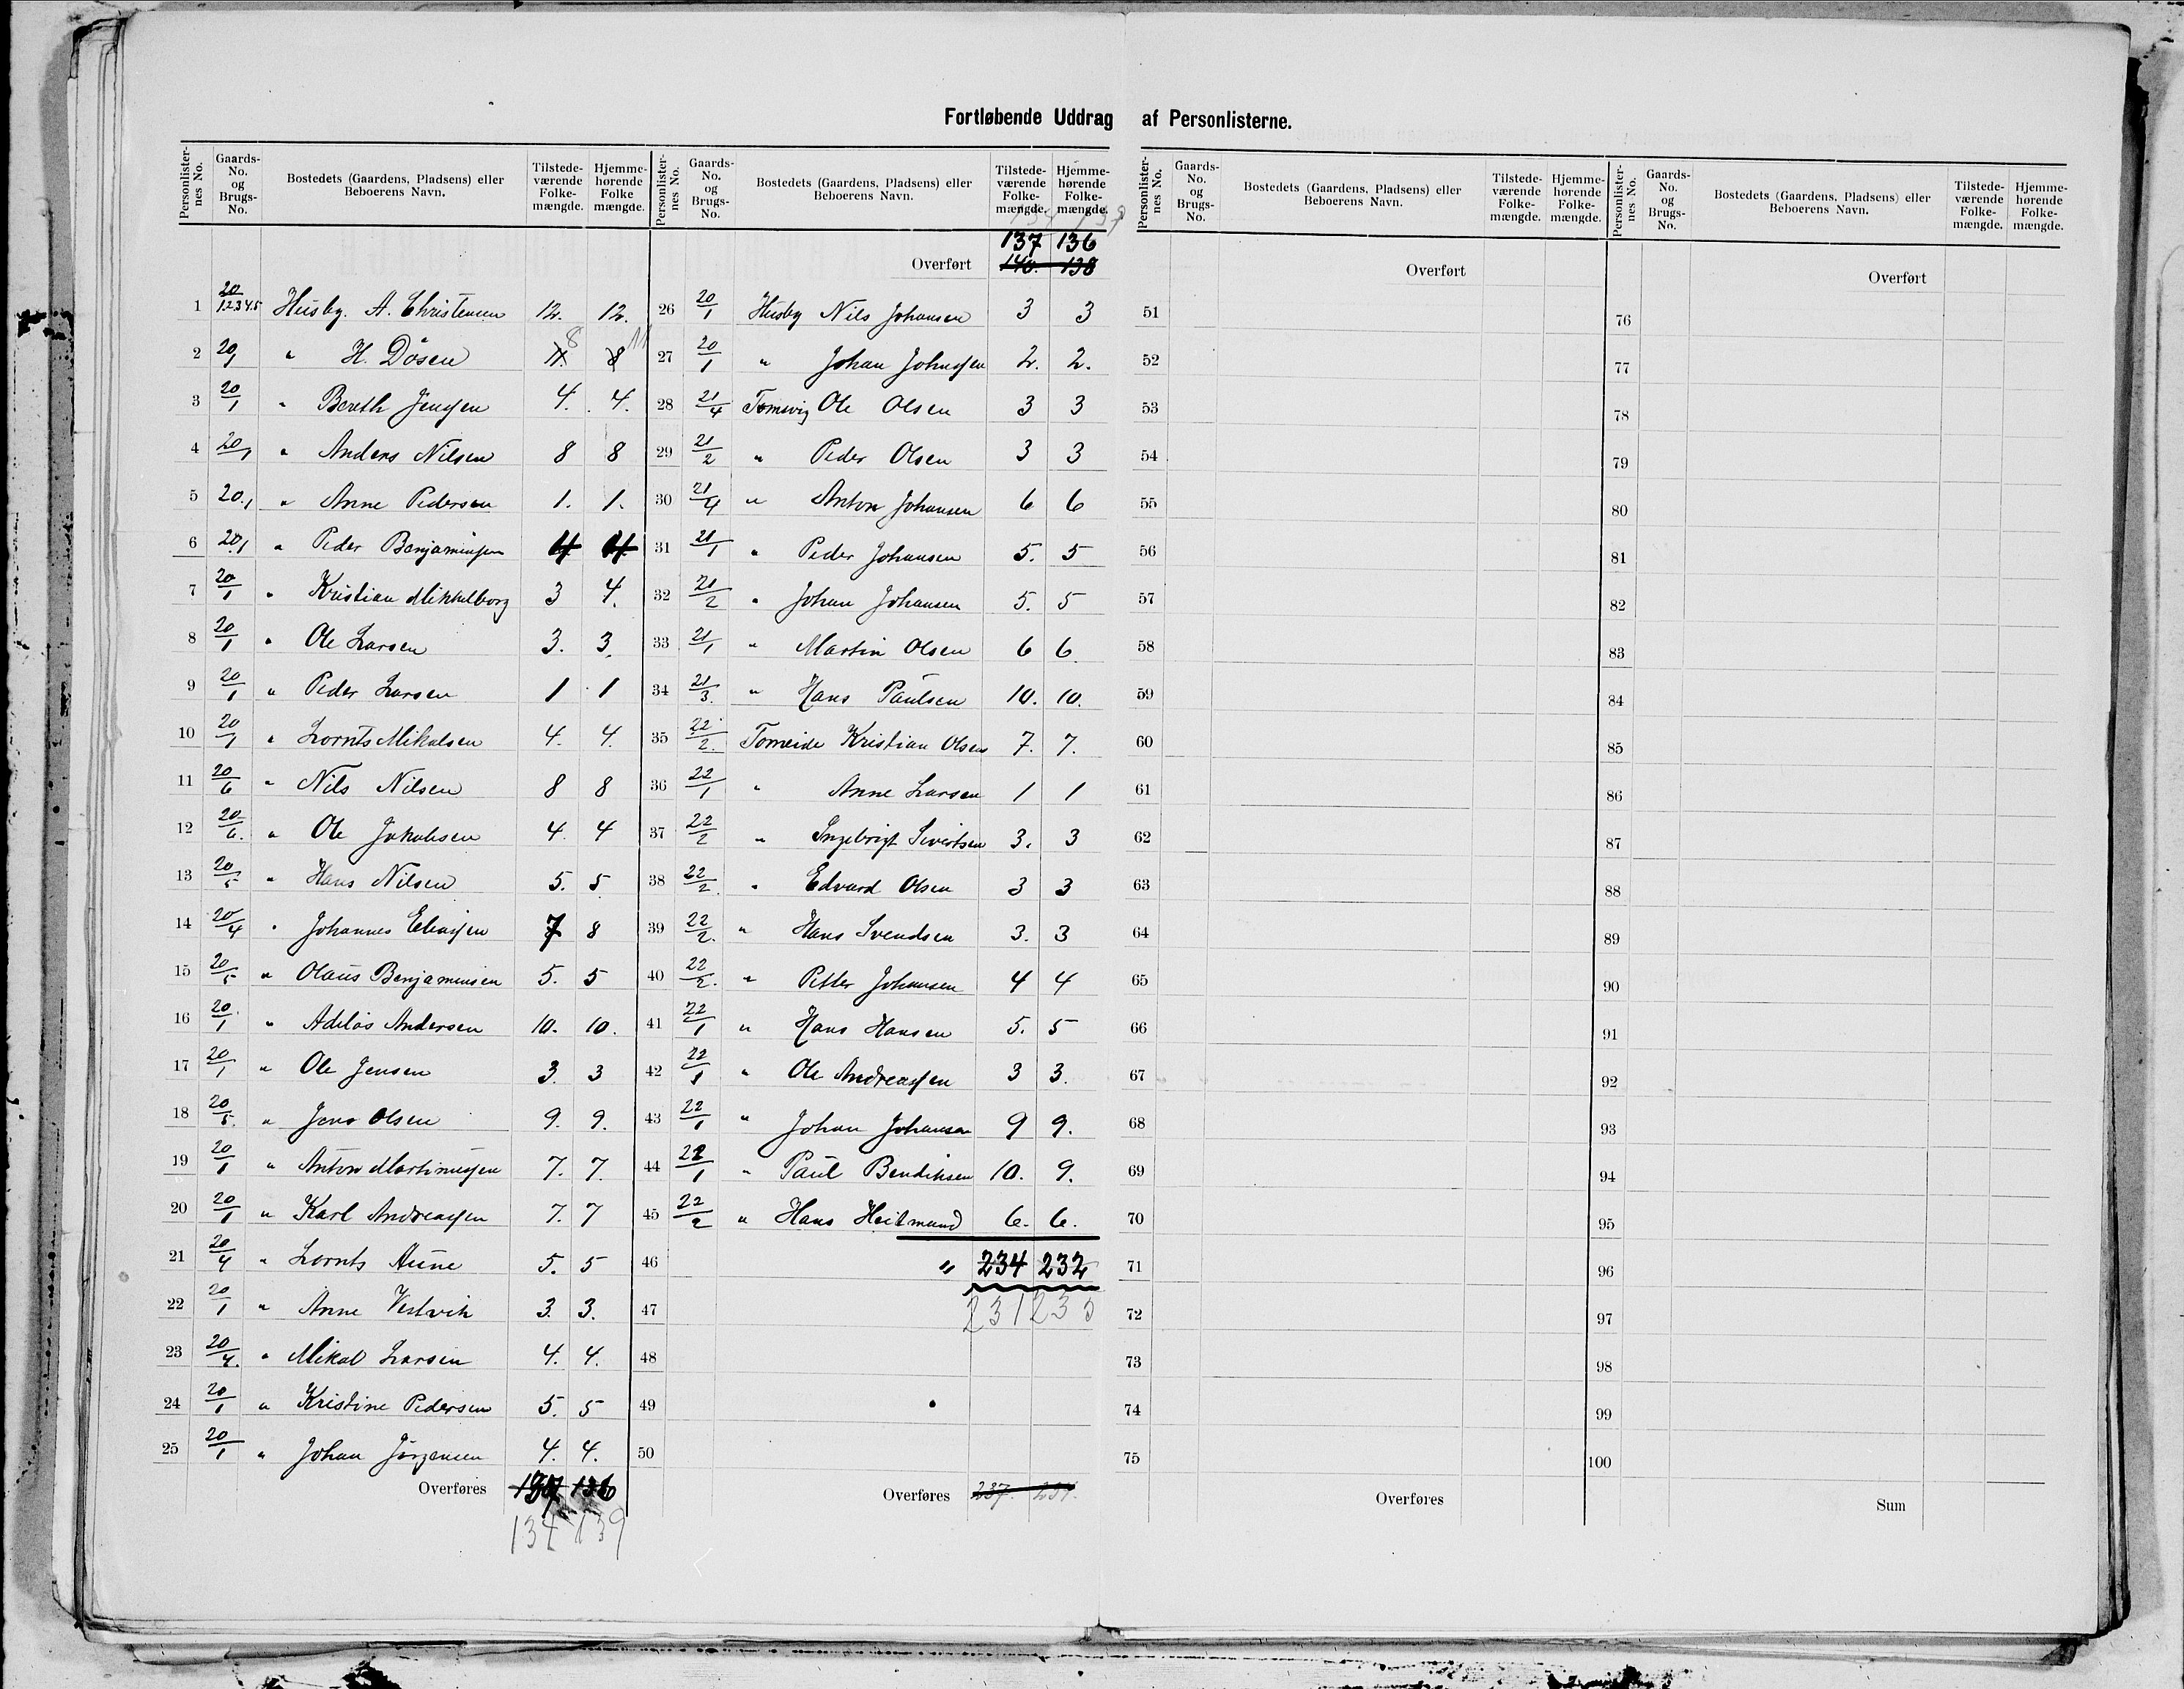 Fortløbende Uddrag af Personlisterne.
Personlister-nes No. Gaards-No. og Brugs-No. Bostedets (Gaardens, Pladsens) eller Beboerens Navn. Tilstede-værende Folke-mængde. Hjemme-hørende Folke mængde.
1 20/1.2.3.4.5 Husby. A. Christensen 12. 12.
2 20/1 " H. Dösen 11. 8 8 11
3 20/1 " Bereth Jensen 4. 4.
4 20/1 " Anders Nilsen 8 8
5 20/1 " Anne Pedersen 1. 1.
6 20/1 " Peder Benjaminsen 4 4
7 20/1 " Kristian Mikkelborg 3 4.
8 20/1 " Ole Larsen 3. 3.
9 20/1 " Peder Larsen 1 1
10 20/1 " Lornts Mikalsen 4. 4.
11 20/6 " Nils Nilsen 8 8
12 20/6. " Ole Jakobsen 4. 4
13 20/5 " Hans Nilsen 5. 5
14 20/4 " Johannes Eliassen 7 8
15 20/5 " Olaus Benjaminsen 5. 5
16 20/1 " Adelös Andersen 10. 10.
17 20/1 " Ole Jensen 3. 3
18 20/5. " Jens Olsen 9. 9.
19 20/1 " Anton Martinussen 7. 7.
20 20/1 " Karl Andreassen 7. 7
21 20/4 " Lornts Aune 5. 5
22 20/1 " Anne Vestvik 3. 3.
23 20/4. " Mikal Larsen 4. 4.
24 20/1 " Kristine Pedersen 5. 5
25 20/1 " Johan Jörgensen 4. 4.
Overføres 137 136
134 139
Personlister-nes No. Gaards-No. og Brugs-No. Bostedets (Gaardens, Pladsens) eller Beboerens Navn. Tilstede-værende Folke-mængde. Hjemme-hørende Folke-mængde.
134 139
137 136
Overført 140. 138
26 20/1 Husby Nils Johansen 3 3
27 20/1 " Johan Johnssen 2. 2.
28 21/4 Tomvig Ole Olsen 3 3
29 21/2 " Peder Olsen 3 3
30 21/4 " Anton Johansen 6 6
31 21/1 " Peder Johansen 5. 5
32 21/2 " Johan Johansen 5. 5
33 21/1 " Martin Olsen 6 6
34 21/3. " Hans Paulsen 10. 10.
35 22/2. Tomeide Kristian Olsen 7. 7.
36 22/1 " Anne Larsen 1 1
37 22/2 " Ingebrigt Sivertsen 3. 3
38 22/2. " Edvard Olsen 3 3
39 22/2. " Hans Svendsen 3. 3
40 22/2. " Petter Johansen 4 4
41 22/1 " Hans Hansen 5. 5
42 22/1 " Ole Andreassen 3 3.
43 22/1 " Johan Johansen 9 9.
44 22/1 " Paul Bendiksen 10. 9.
45 22/2 " Hans Heitmand 6. 6.
46 " 234 232
47 231 235
48
49
50
Overføres 237. 234.
Personlister-nes No. Gaards-No. og Brugs-No. Bostedets (Gaardens, Pladsens) eller Beboerens Navn. Tilstede-værende Folke-mængde. Hjemme-hørende Folke-mængde.
Overført
51
52
53
54
55
56
57
58
59
60
61
62
63
64
65
66
67
68
69
70
71
72
73
74
75
Overføres
Personlister-nes No. Gaards-No. og Brugs-No. Bostedets (Gaardens, Pladsens) eller Beboerens Navn. Tilstede-værende Folke-mængde. Hjemme-hørende Folke-mængde.
Overført
76
77
78
79
80
81
82
83
84
85
86
87
88
89
90
91
92
93
94
95
96
97
98
99
100
Sum